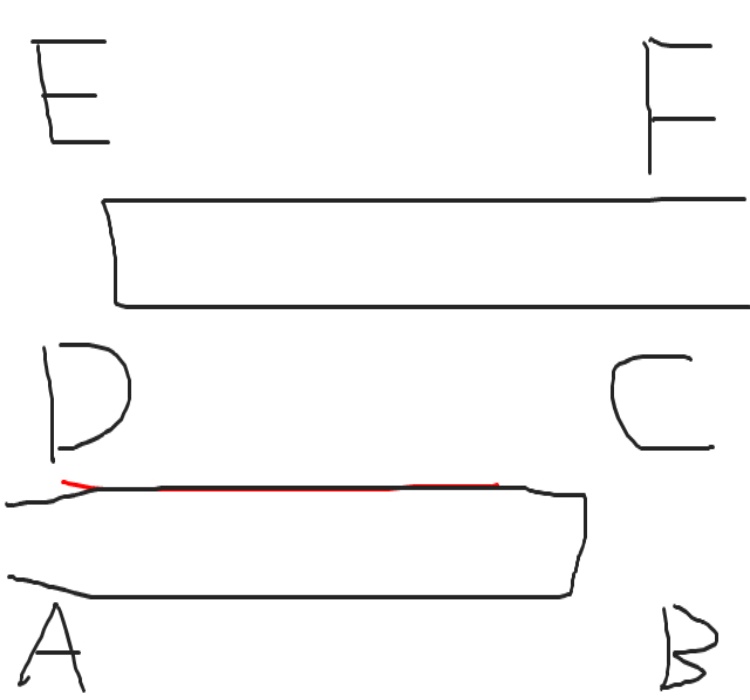 E F
D C
A B